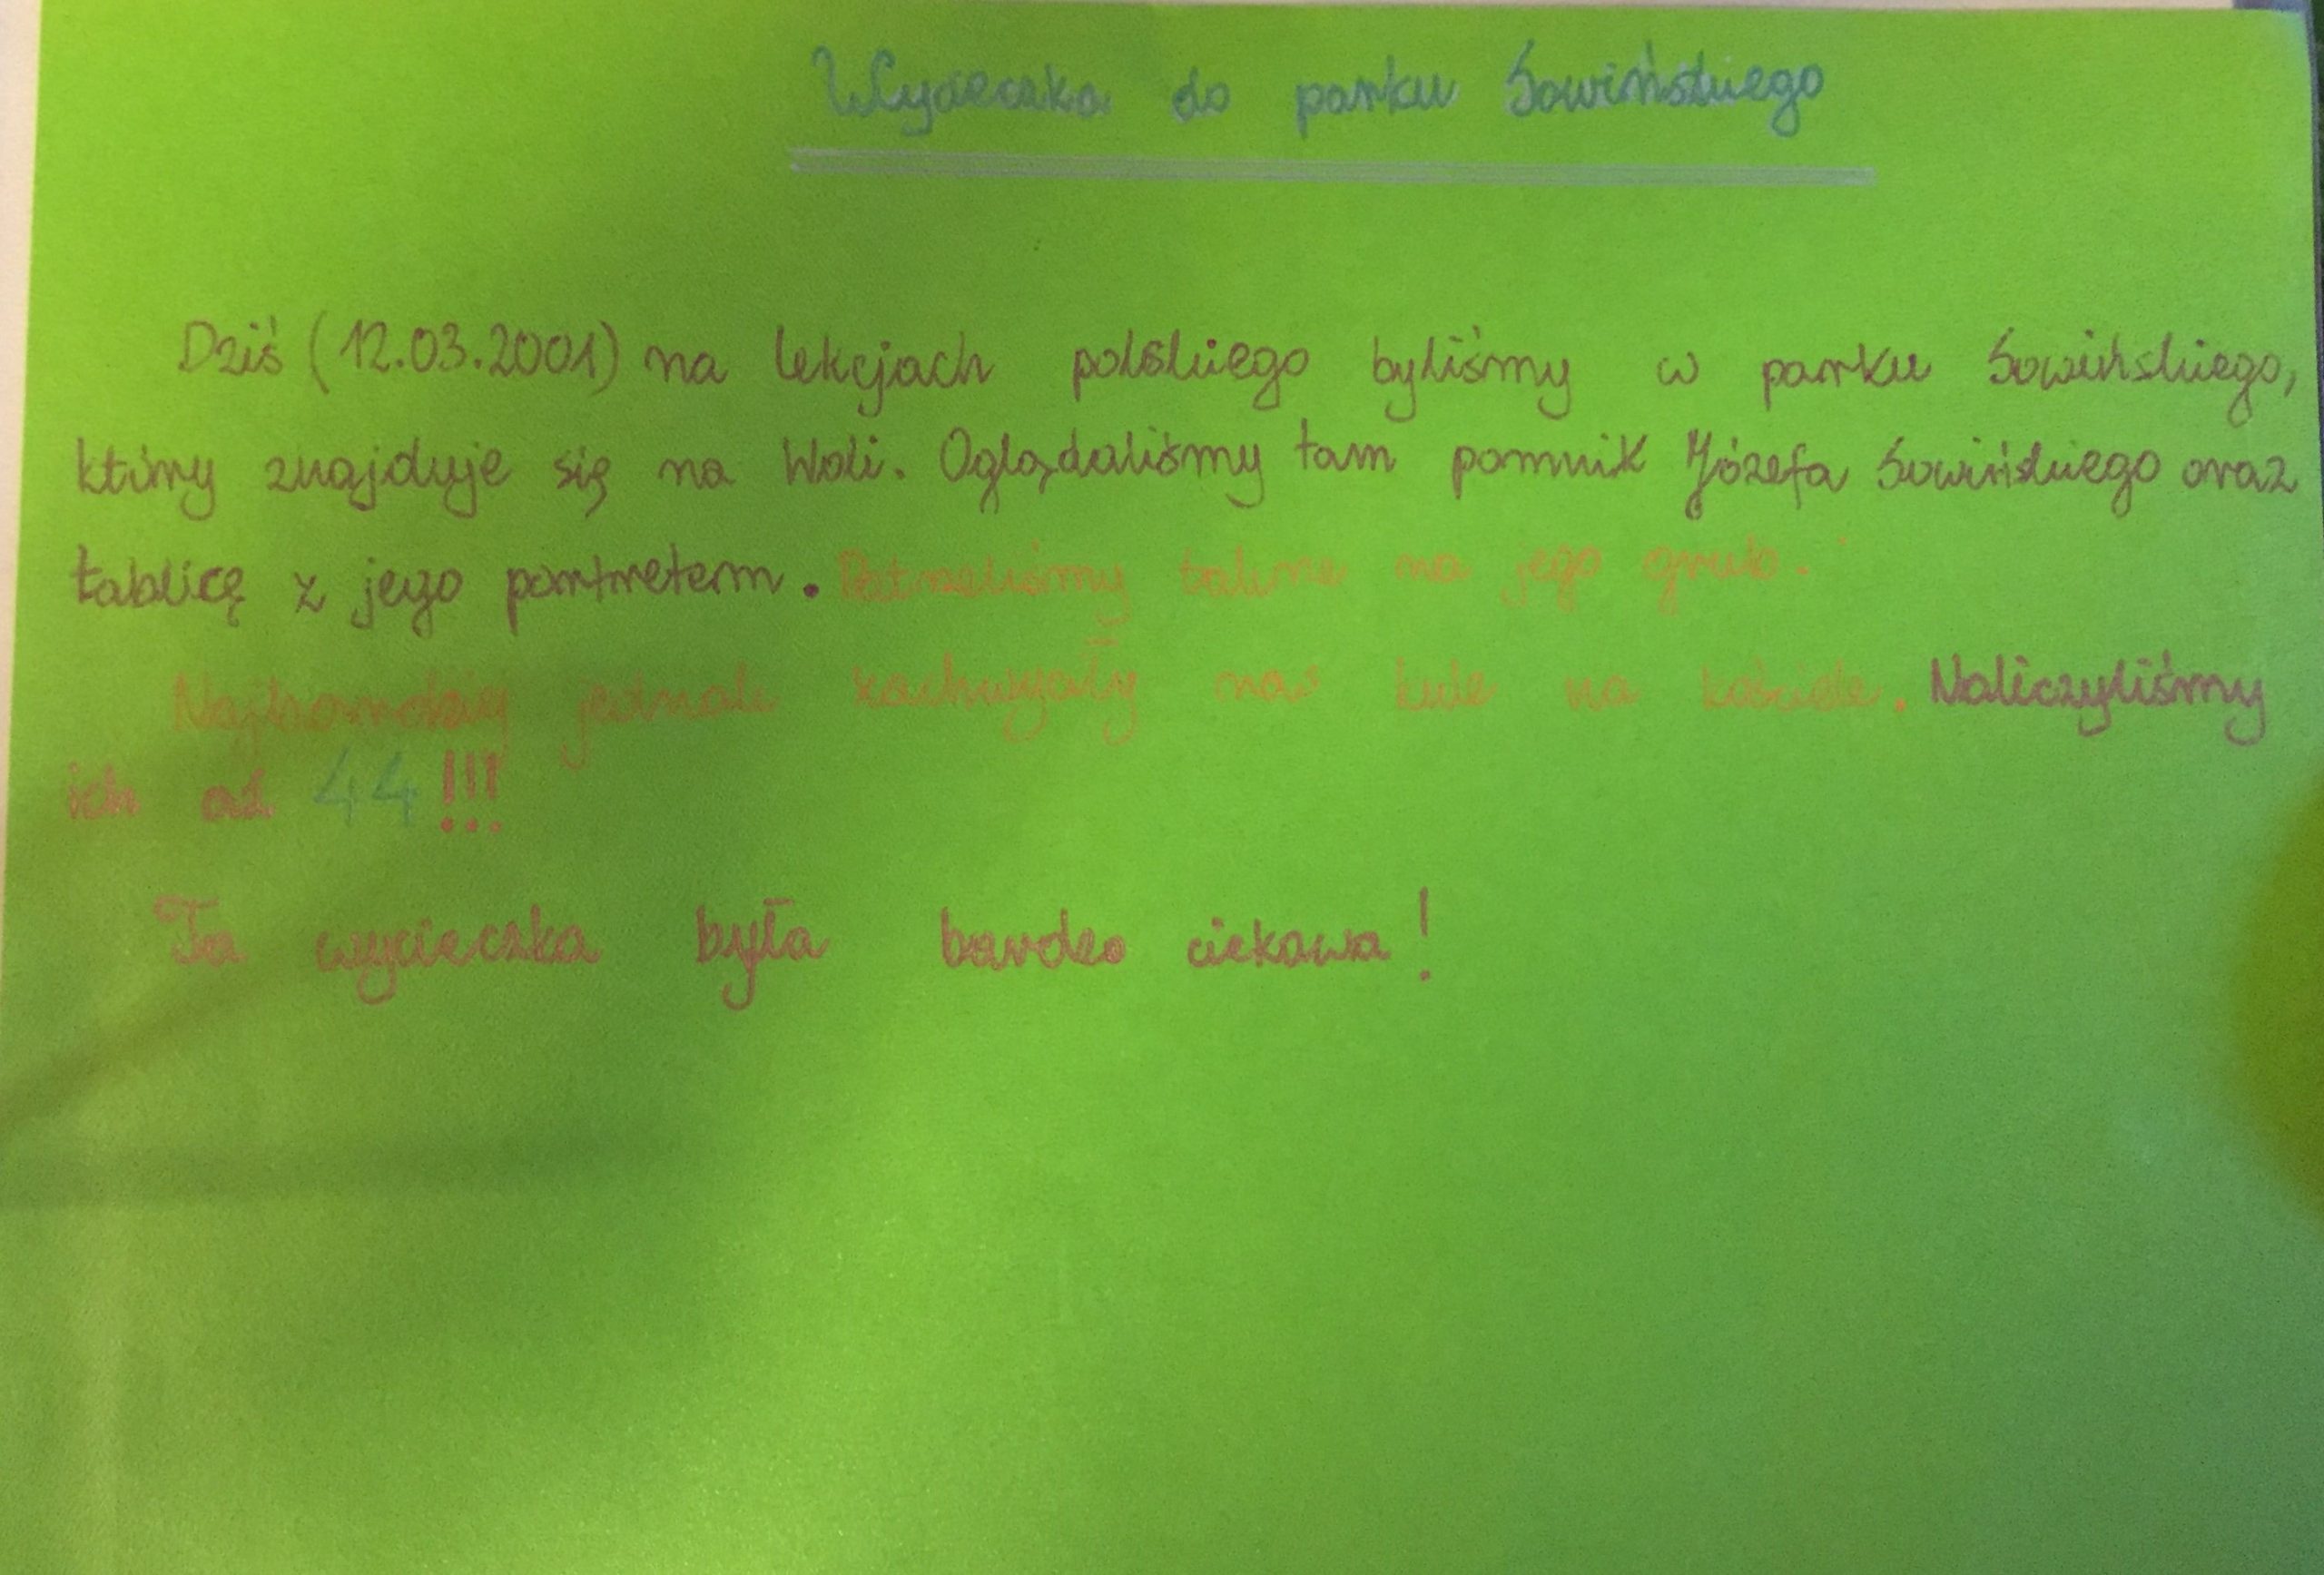 Wycieczka do parku Sowińskiego
Dziś (12.03.2001) na lekcjach polskiego byliśmy w parku Sowińskiego,
który znajduje się na Woli. Oglądaliśmy tam pomnik Józefa Sowińskiego oraz
tablicę z jego portretem. Patrzeliśmy także na jego grób.
Najbardziej jednak zachwycały nas kule na kościele. Naliczyliśmy
ich aż 44!!!
Ta wycieczka była bardzo ciekawa!